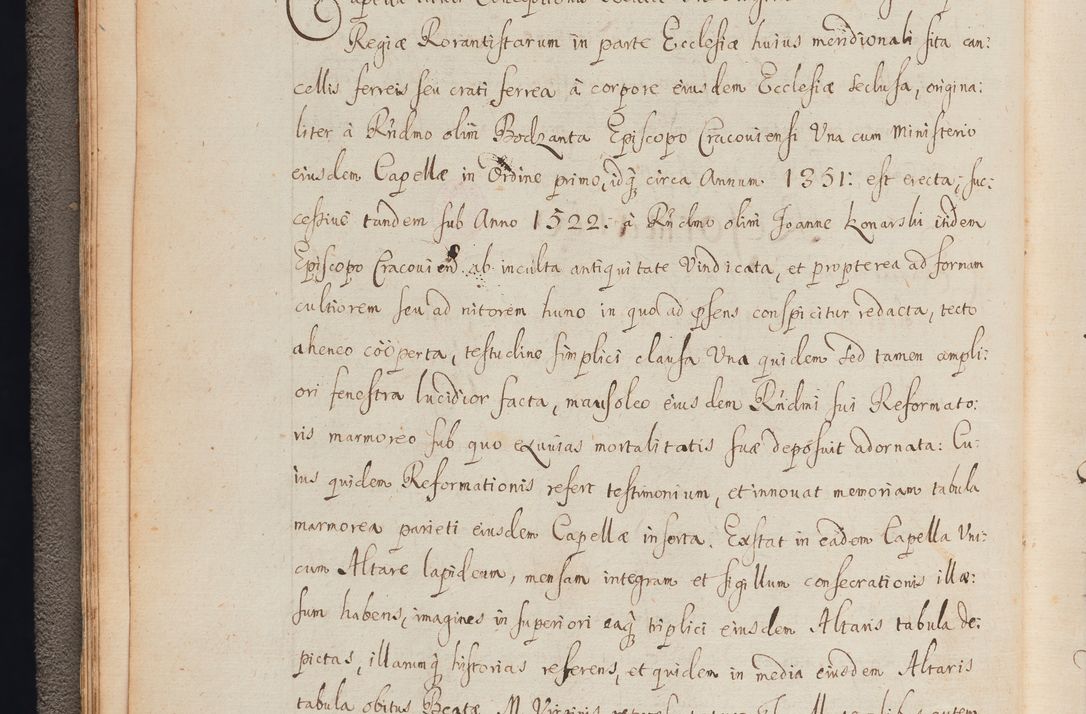 Regiæ Rorantistarum in parte Ecclesiæ huius meridionali sita can:
cellis ferreis seu crati ferrea à corpore eiusdem Ecclesiæ seclusa, origina:
liter à Rńdmo olim Bodzanta Episcopo Cracoviensi Una cum Ministerio
eiusdem Capellæ in Ordine primo, idq́ circa Annum 1351: est erecta; suc:
cessivè tandem sub Anno 1522: à Rńdmo olim Joanne Konarski itidem
Episcopo Cracovien ab inculta antiquitate Vindicata, et propterea ad formam
cultiorem seu ad nitorem hunc in quo ad pśens conspicitur redacta, tecto
aheneo coöperta, testudine simplici clausa Una quidem sed tamen ampli:
ori fenestra lucidior facta, mausoleo eiusdem Rńdmi sui Reformato:
ris marmoreo sub quo exuvias mortalitatis suæ deposuit adornata: Cu:
ius quidem Reformationis refert testimonium, et innovat memoriam tabula
marmorea parieti eiusdem Capellæ inserta. Exstat in eâdem Capella Uni:
cum Altare lapideum, mensam integram et sigillum consecrationis illæ:
sum habens, imagines in superiori eaq́ triplici eiusdem Altaris tabula de:
pictas, illarumq́ historias referens, et quidem in media eiusdem Altaris
tabula obitus Beatæ M. Virginis